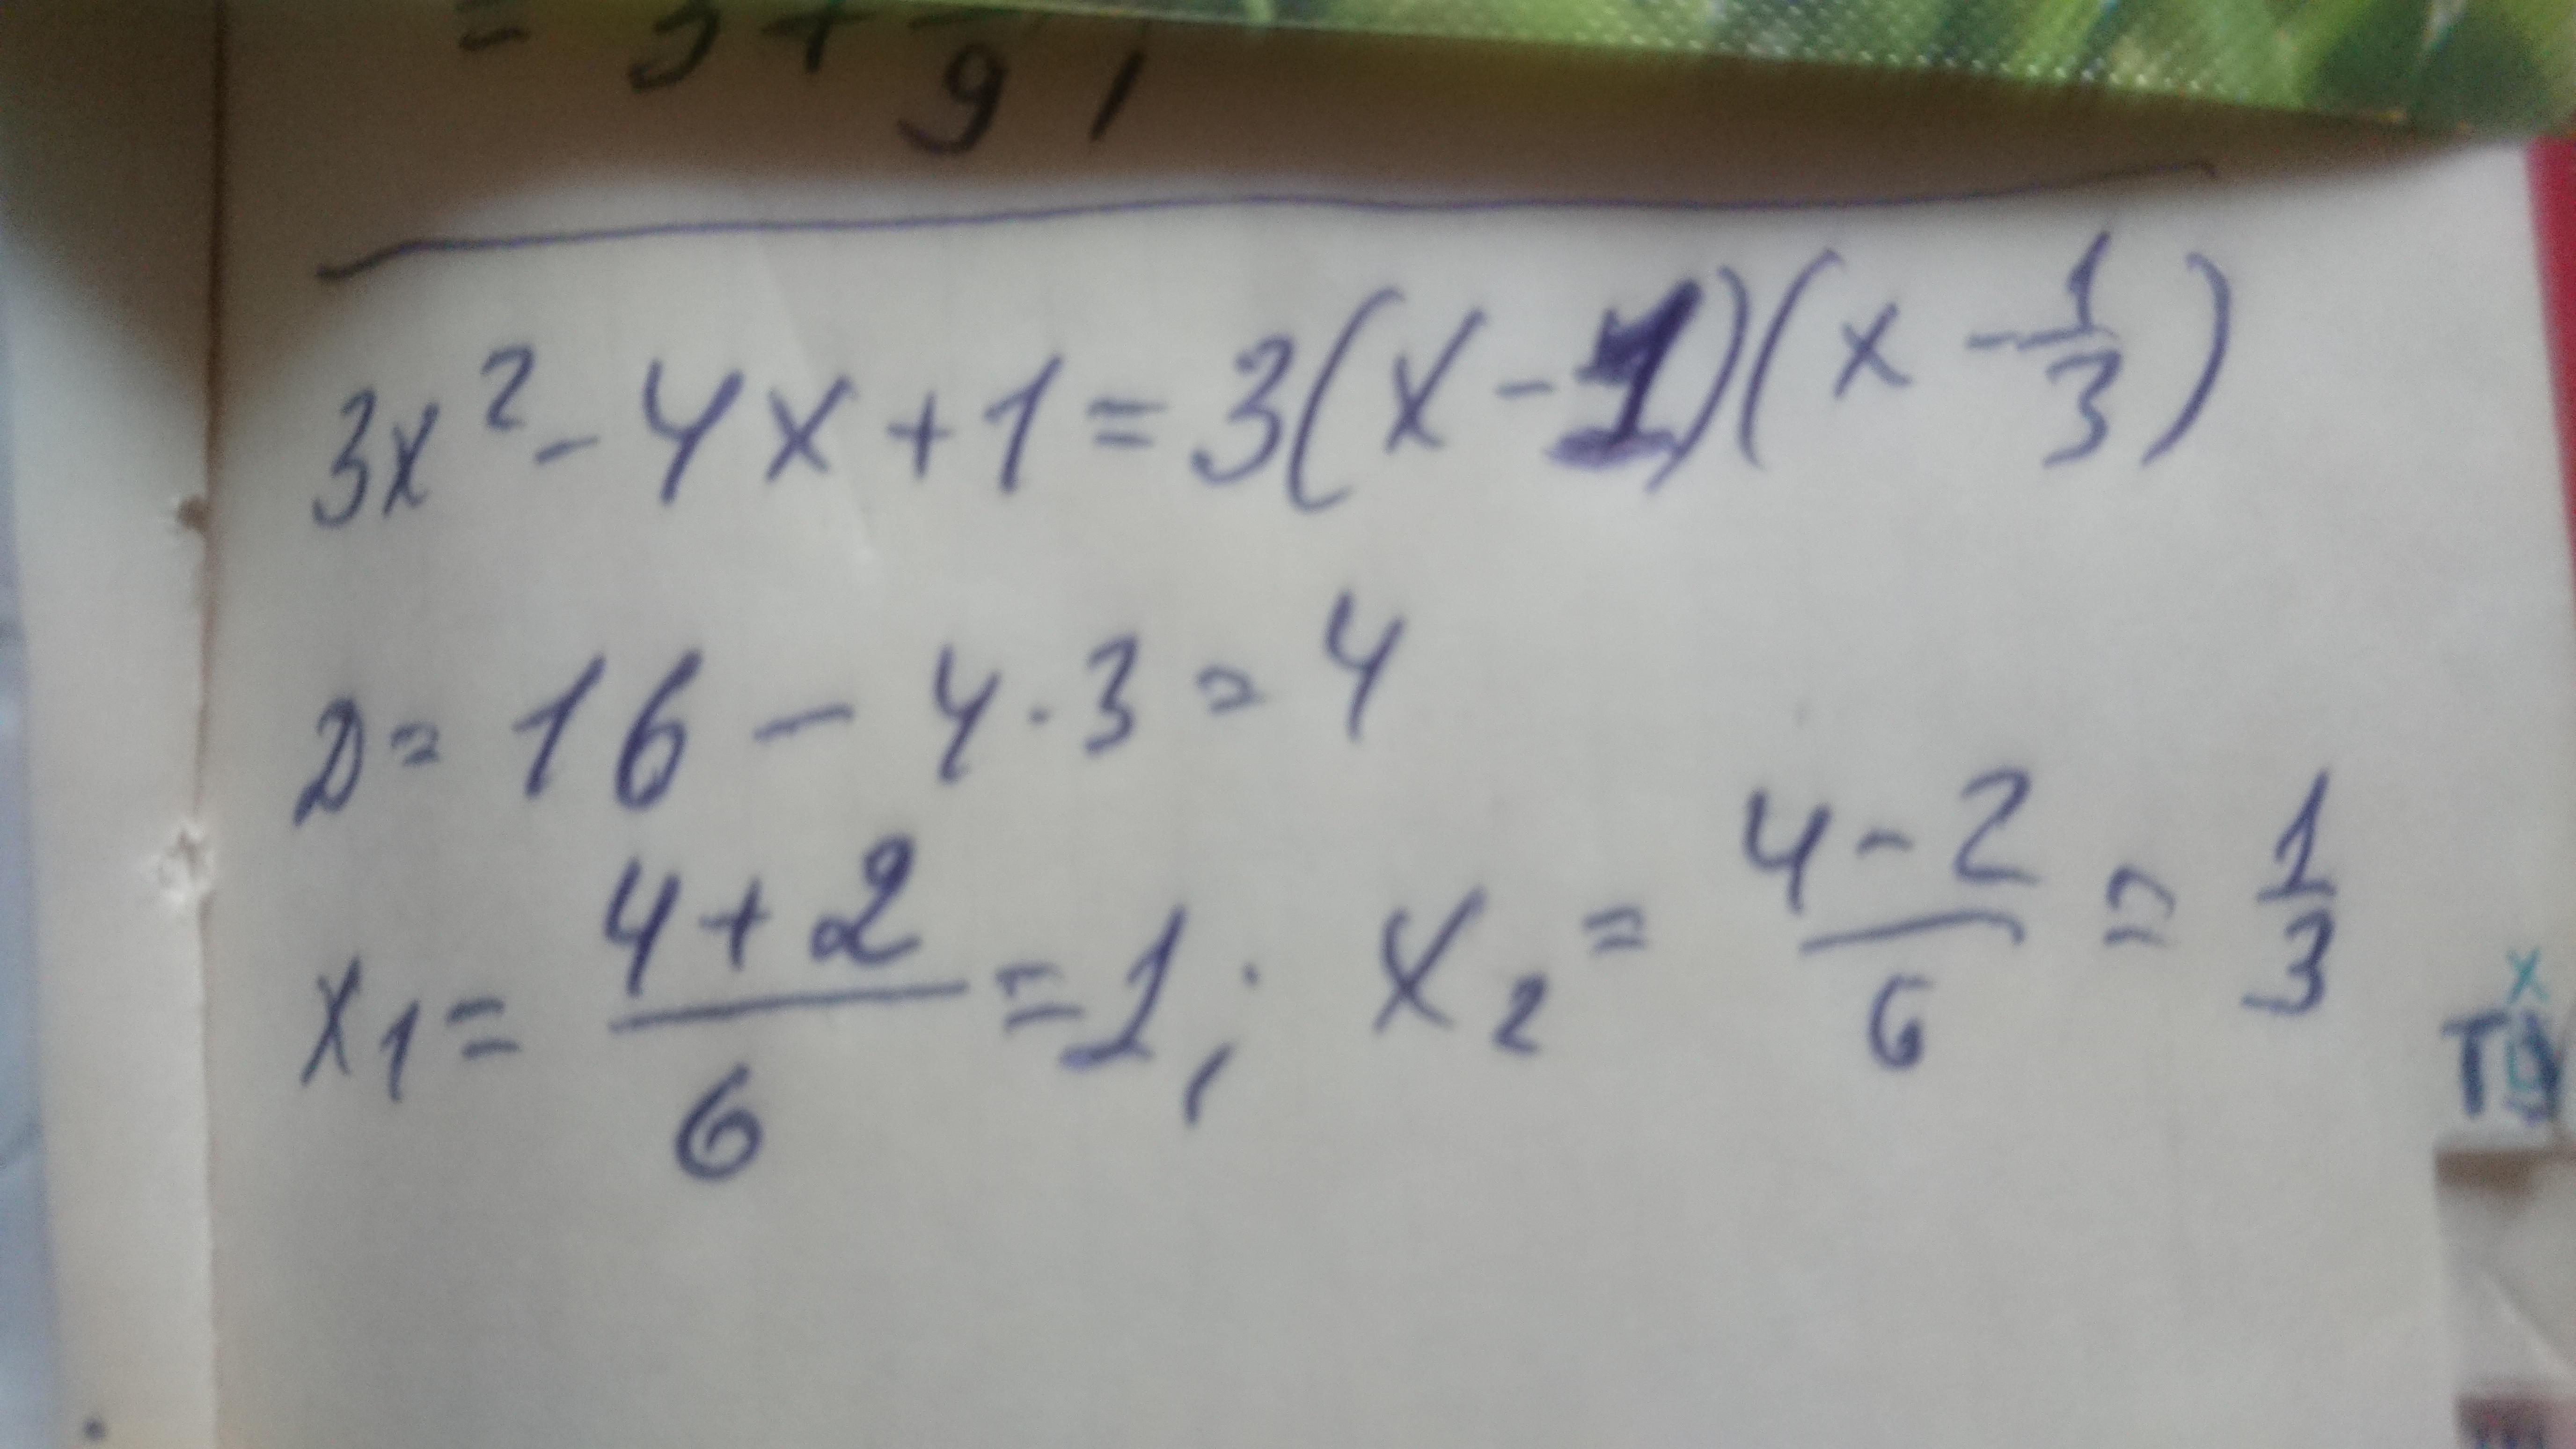 = 3 + — 9 /
3x² - 4x + 1 = 3(x - 1)(x - 1/3)
D = 16 - 4 · 3 = 4
x₁ = (4 + 2)/6 = 1; x₂ = (4 - 2)/6 = 1/3